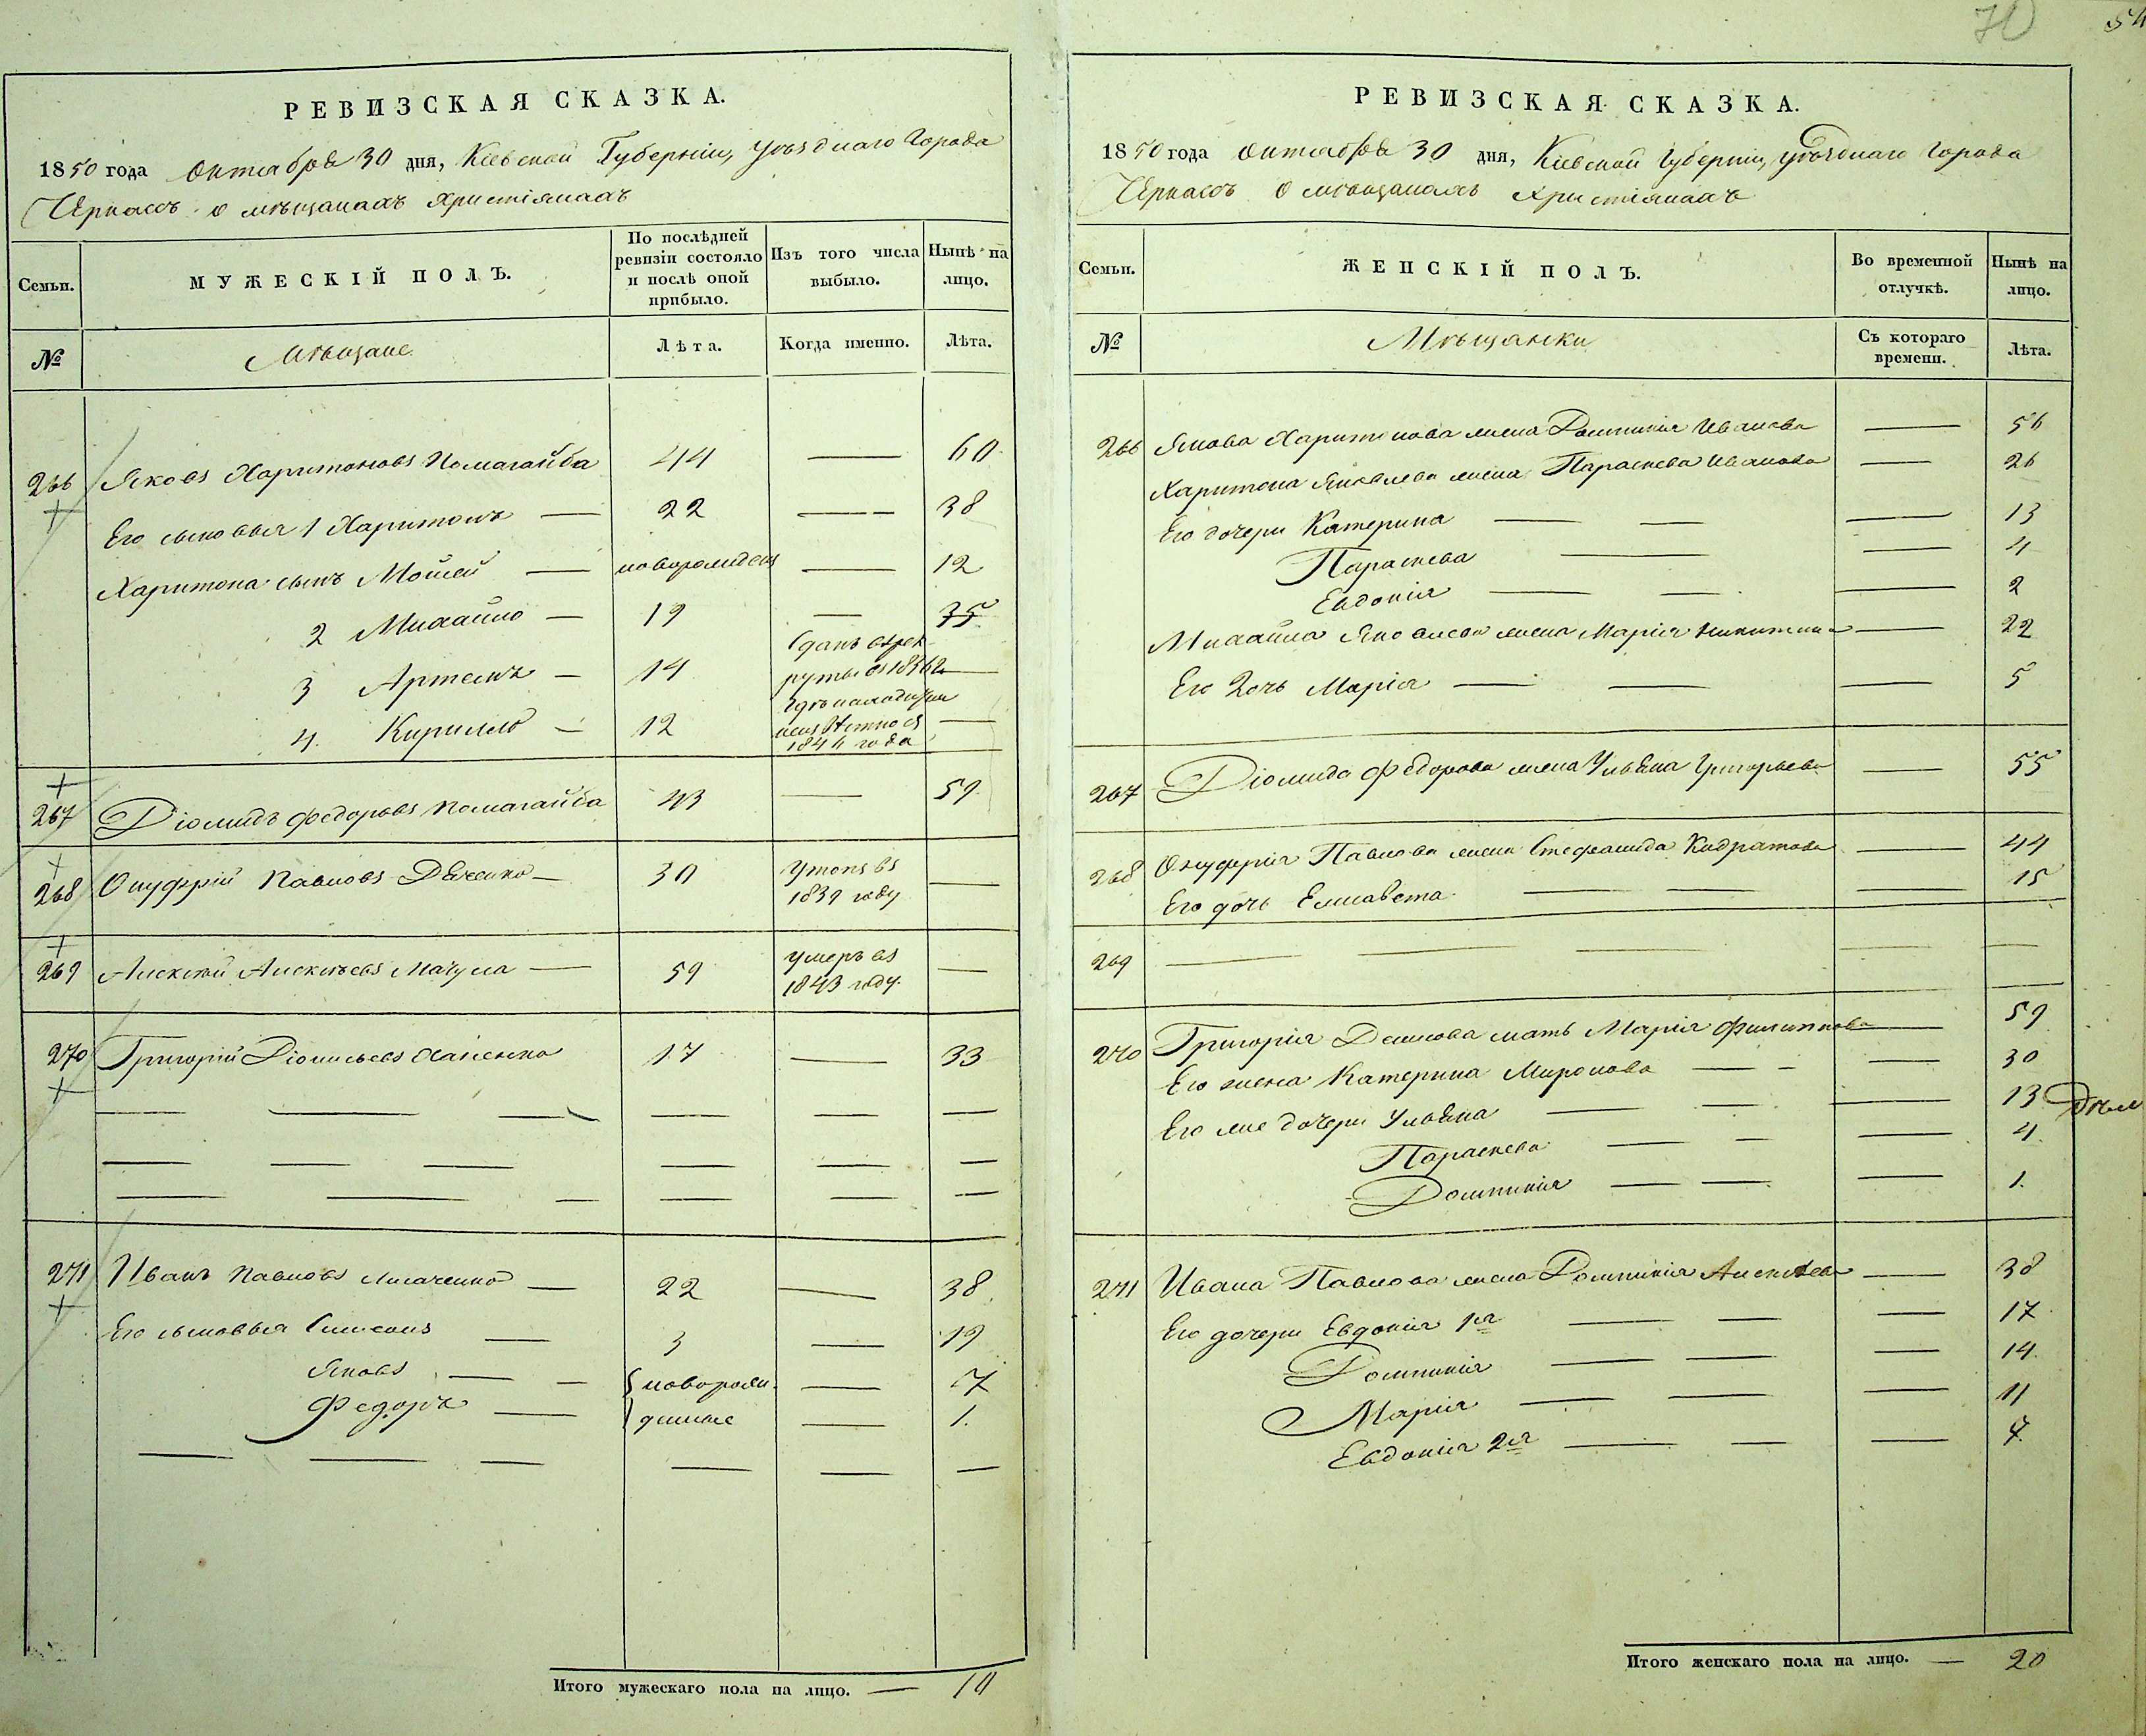 70
54
РЕВИЗСКАЯ СКАЗКА.
1850 года Октября 30 дня, Кіевской Губерніи, Уѣзднаго Города
Черкасъ о мѣщанахъ Христіянахъ
Семьи.
МУЖЕСКІЙ ПОЛЪ.
По послѣдней ревизіи состояло и послѣ оной прибыло.
Изъ того числа выбыло.
Нынѣ на лицо.
№
Мѣщане.
Лѣта.
Когда именно.
Лѣта.
266 Яковъ Харитоновъ Помагайба 44 — 60
Его сыновья 1 Харитонъ — 22 — 38
Харитона сынъ Мойсей — новорожденъ — 12
2 Михайло — 19 — 35
3 Артемъ — 14 Сданъ въ рекруты въ —
4. Кирилло — 12 неизвѣстно съ 1844 года —
267 Діомидъ Федоровъ Помагайба 43 — 59
268 Онуфрій Павловъ — 30 Утопъ въ 1839 году —
269 Алексѣй Алексѣевъ Мачула — 59 умеръ въ 1843 году. —
270 Григорій Діонисьевъ 17 — 33
271 Иванъ Павловъ — 22 — 38
Его сыновья Симеонъ — 3 — 19
Яковъ — новорож — 7
Федоръ — денные — 1.
Итого мужескаго пола на лицо. — 10
РЕВИЗСКАЯ СКАЗКА.
1850 года Октября 30 дня, Кіевской Губерніи, уѣзднаго Города
Черкасъ о мѣщанахъ Христіянахъ
Семьи.
ЖЕНСКІЙ ПОЛЪ.
Во временной отлучкѣ.
Нынѣ на лицо.
№
Мѣщанки
Съ котораго времени.
Лѣта.
266 Якова Харитонова жена Домникія Иванова — 56
Харитона Яковлева жена Параскева Иванова — 26
Его дочери Катерина — 13
Параскева — 4
Евдокія — 2
Михайла Яковлева жена Марія Никитина — 22
Его дочь Марія — 5
267 Діомида Федорова жена Ульяна Григорьева — 55
268 Онуфрія Павлова жена Стефанида Кодратова — 44
Его дочь Елисавета — 15
269 —
270 Григорія Денисова мать Марія Филиппова — 59
Его жена Катерина Миронова — 30
Его же дочери Ульяна — 13
Параскева — 4.
Домникія — 1.
271 Ивана Павлова жена Домникія Алексѣева — 38
Его дочери Евдокія 1я — 17
Домникія — 14.
Марія — 11
Евдокія 2я — 7.
Итого женскаго пола на лицо. — 20